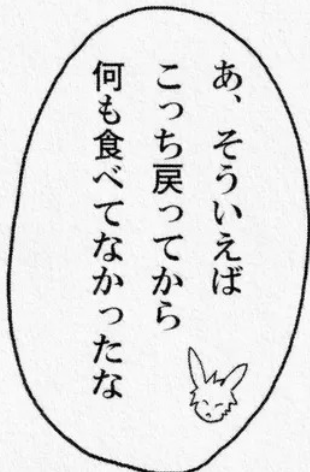 あ、そういえば
こっち戻ってから
何も食べてなかったな